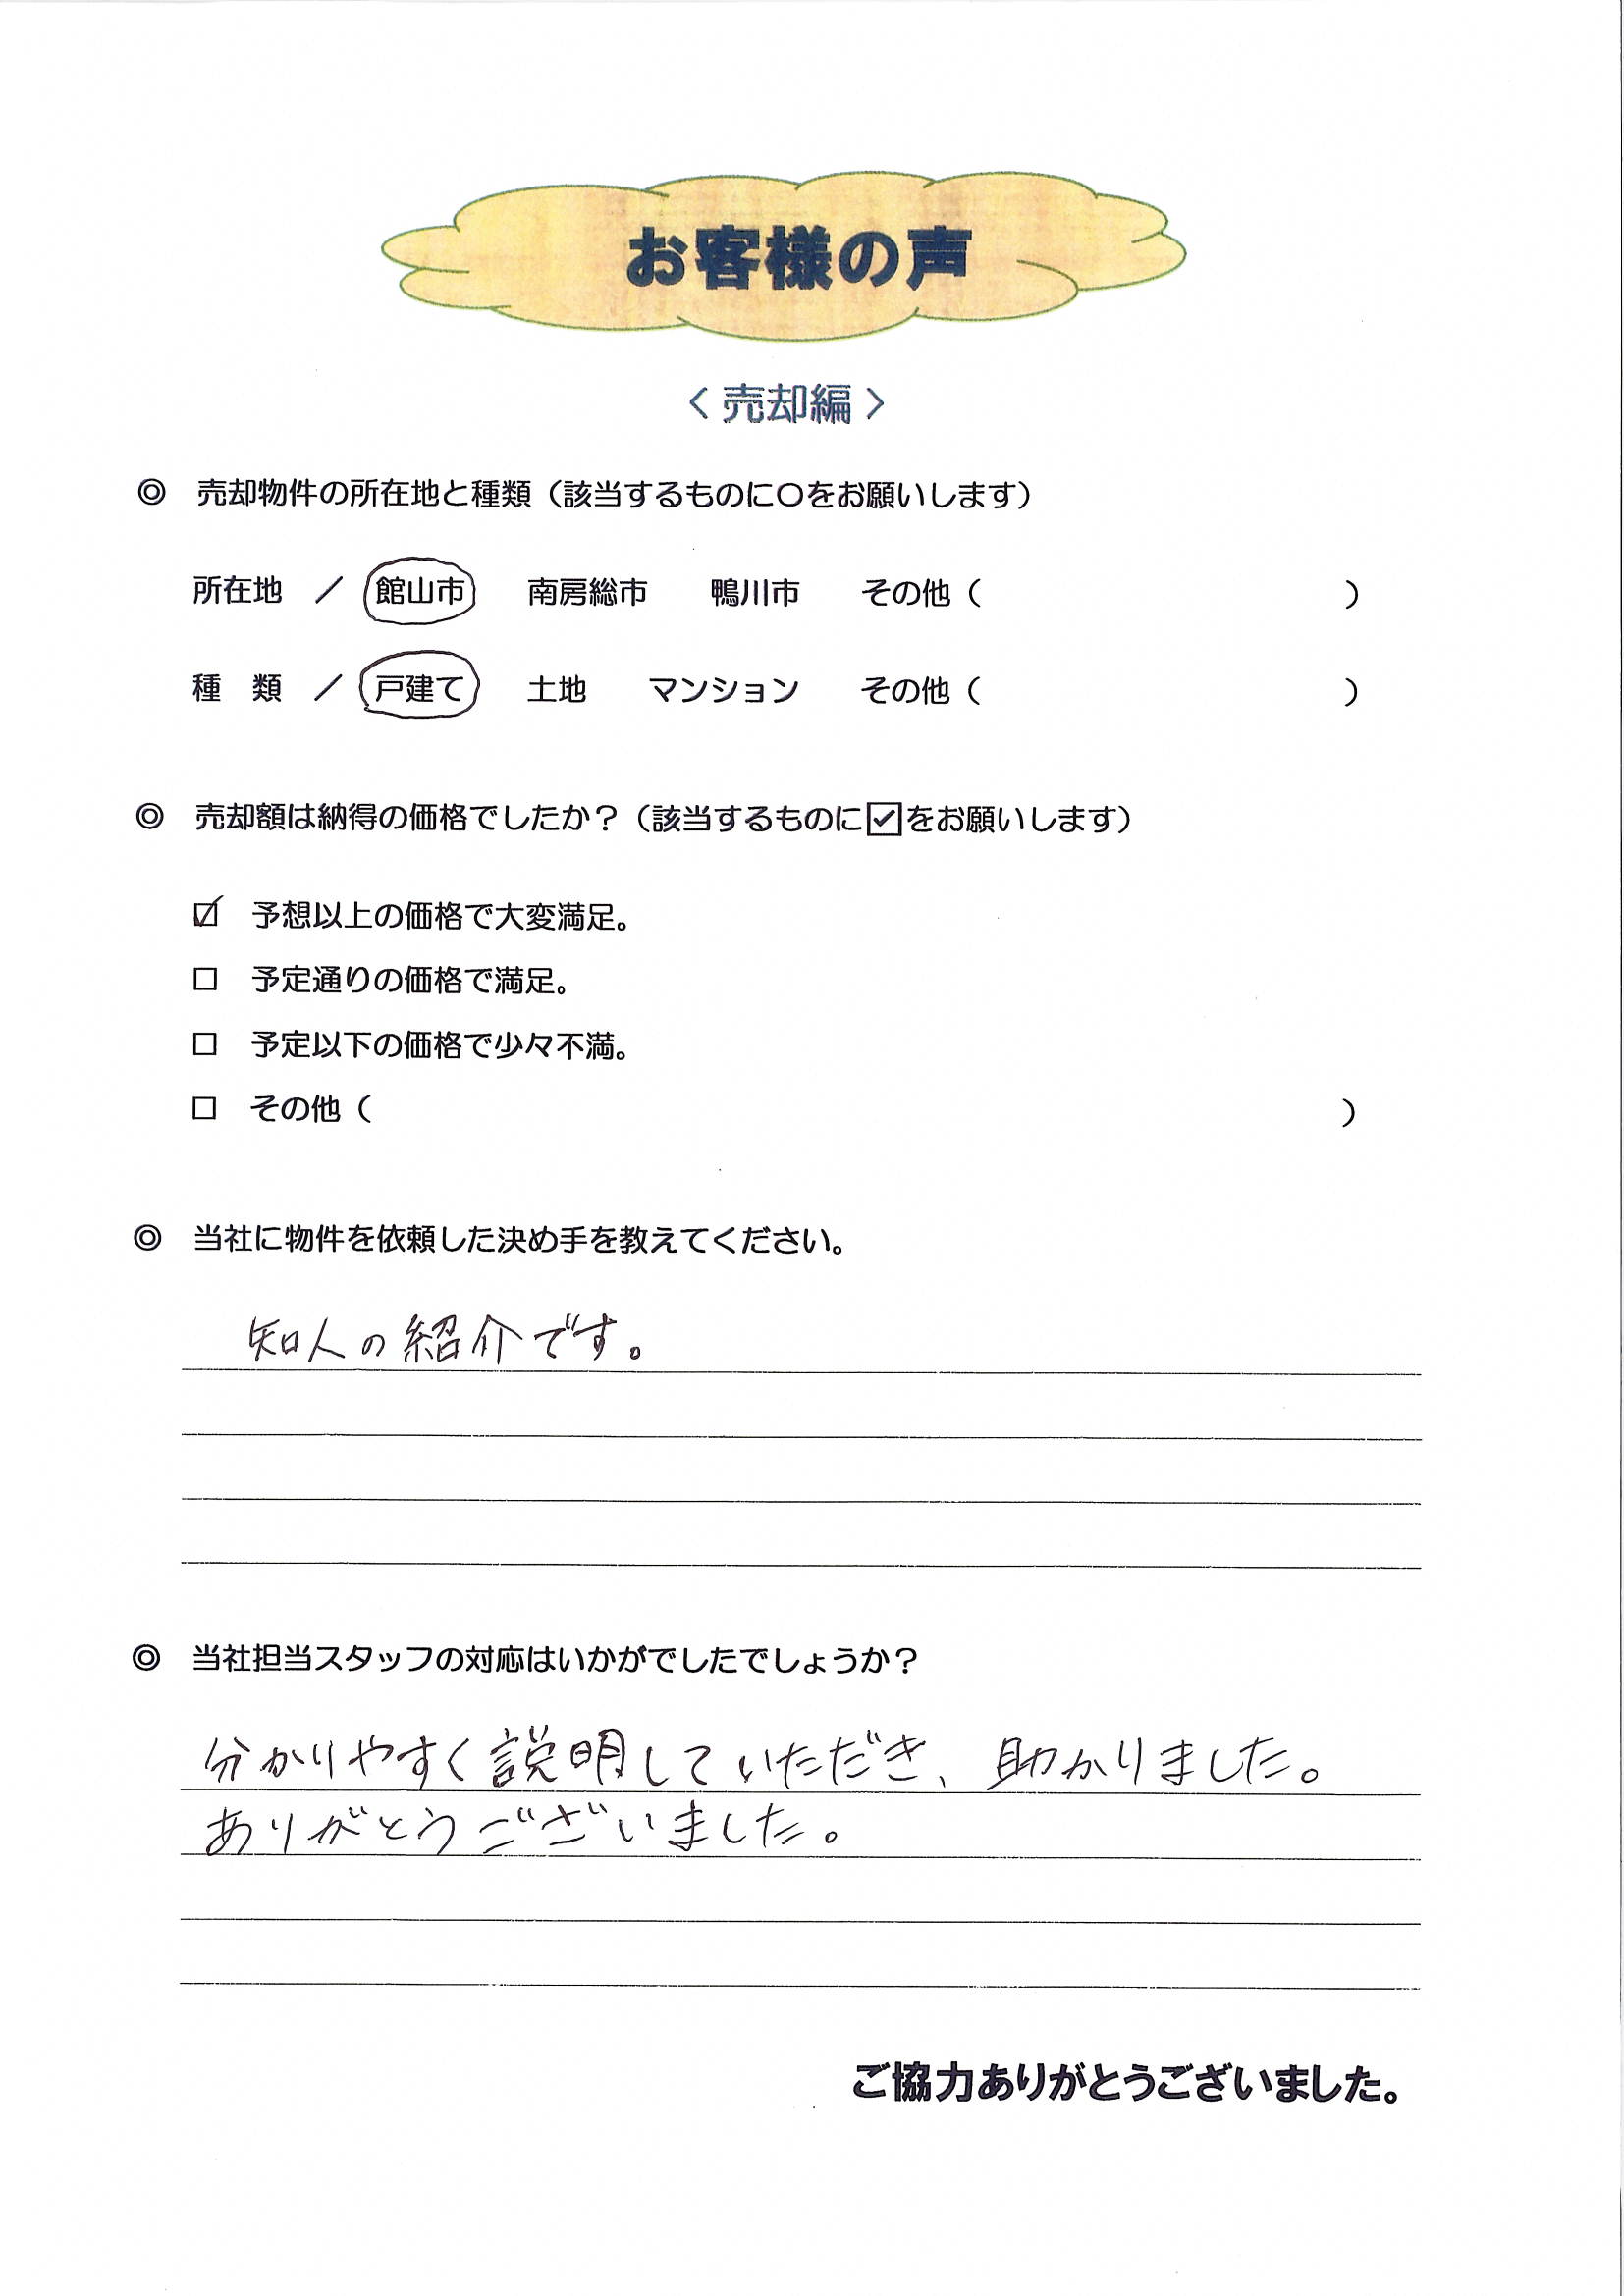 お客様の声
〈 売却編 〉
◎ 売却物件の所在地と種類（該当するものに〇をお願いします）
所在地 ／ 館山市 南房総市 鴨川市 その他（ ）
種 類 ／ 戸建て 土地 マンション その他（ ）
◎ 売却額は納得の価格でしたか？（該当するものに☑をお願いします）
☑ 予想以上の価格で大変満足。
□ 予定通りの価格で満足。
□ 予定以下の価格で少々不満。
□ その他（ ）
◎ 当社に物件を依頼した決め手を教えてください。
知人の紹介です。
◎ 当社担当スタッフの対応はいかがでしたでしょうか？
分かりやすく説明していただき、助かりました。
ありがとうございました。
ご協力ありがとうございました。